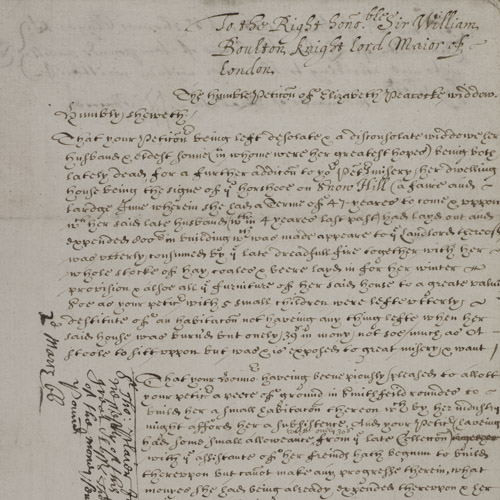 To the Right hono:ble Sir William
Boulton, Knight lord Maior of
London.
The humble Peticon of Elizabeth Peacocke widdow
Humbly sheweth
That your Petitionr being left desolate & a disconsolate widdowe (her
husband & eldest sonne in whome were her greatest hopes) being both
lately dead, for a further additon to yor Petrs misery, her dwelling
house being the signe of ye horshoe on Snow Hill (a faire and
lardge Inne wherein she had a terme of 47 yeares to come & uppon
wch her said late husband within 4 yeares last past had layd out and
expended 800li in building wch was made appeare to ye landlord thereof)
was utterly consumed by ye late dreadfull fire together with her
whole stocke of hay, coales & beere layd in for her winter
provision & alsoe all ye furniture of her said house to a great value
Soe as your petir with 5 small children were lefte utterly
destitute of an habitaton not haveing any thing lefte when her
said house was burnd but onely in mony, not soe much as a
stoole to sitt uppon but was exposed to great misery & want
That your Honor haveing beene piously pleased to allott
your petir a peece of ground in Smithfeild rounds to
build her a small habitaton thereon wch by her industry
might afford her a subsistence. And your Petir haveing
had some small allowance from ye late Collecton
with ye assistance of her friends hath begunn to build
thereupon but cannot make any progresse therein, what
moneyes she had being already expended thereupon & her
20 Marc 66